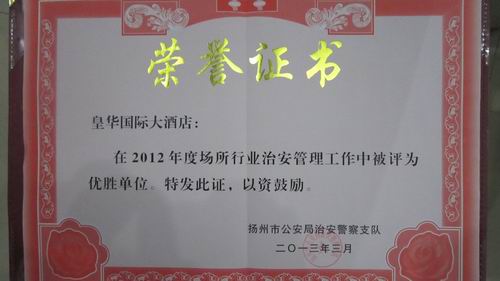 荣誉证书
皇华国际大酒店：
在2012年度场所行业治安管理工作中被评为
优胜单位。特发此证，以资鼓励。
扬州市公安局治安警察支队
二〇一三年三月